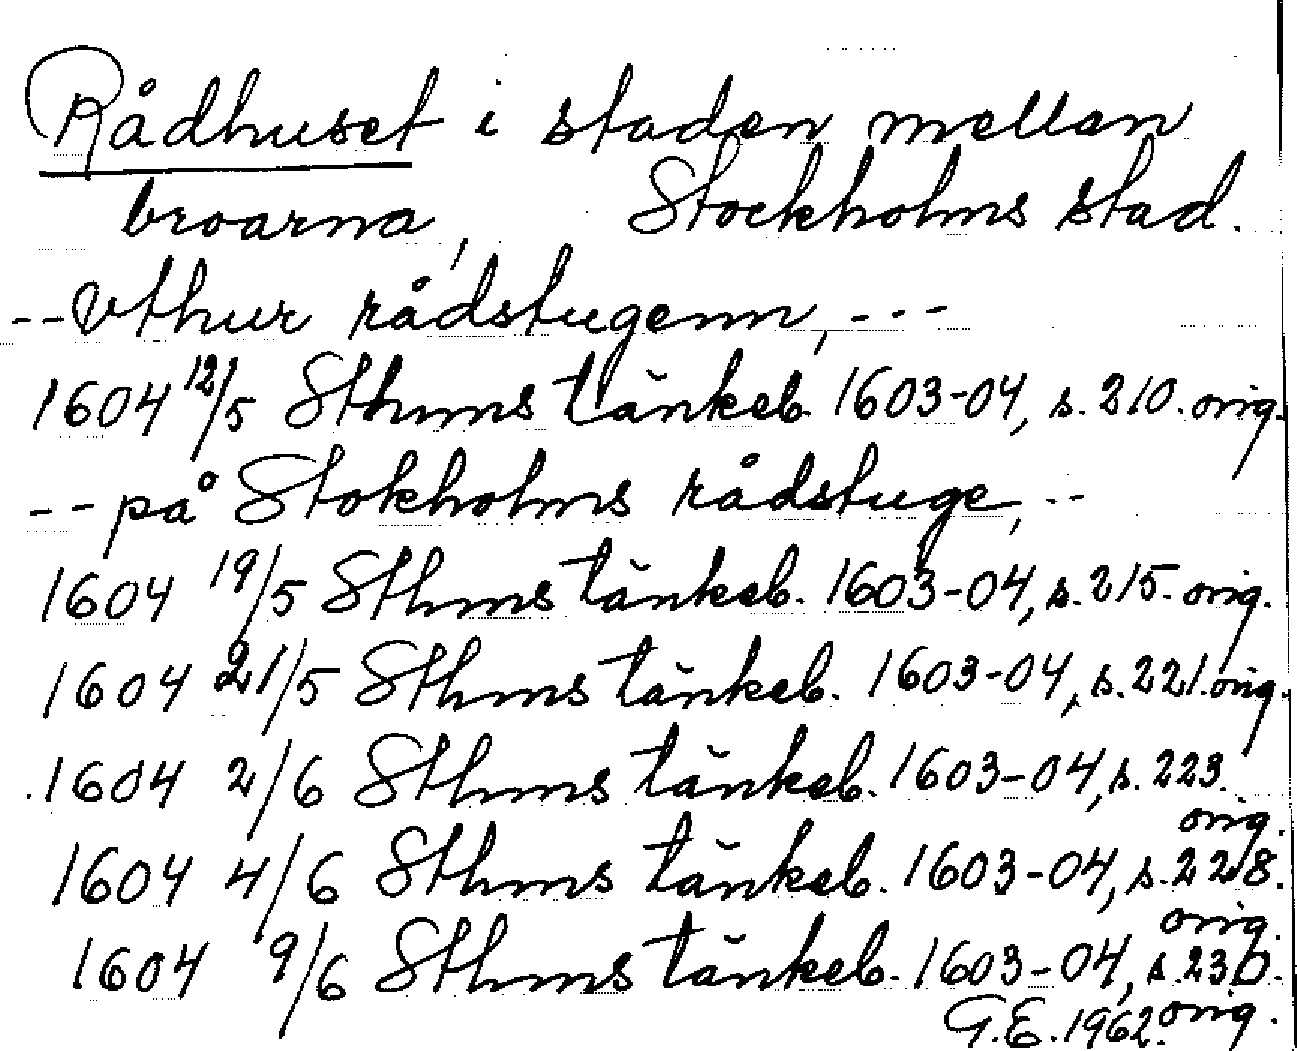 Rådhuset i staden mellan
broarna, Stockholms stad.
--Vthur rådstugenn,---
1604 12/5 Sthms tänkeb. 1603-04, s. 210. orig.
--på Stokholms rådstuge,--
1604 19/5 Sthms tänkeb. 1603-04, s. 215. orig.
1604 21/5 Sthms tänkeb. 1603-04, s. 221. orig.
1604 2/6 Sthms tänkeb. 1603-04, s. 223.
orig.
1604 4/6 Sthms tänkeb. 1603-04, s. 228.
orig.
1604 9/6 Sthms tänkeb. 1603-04, s. 230.
G.E. 1962. orig.